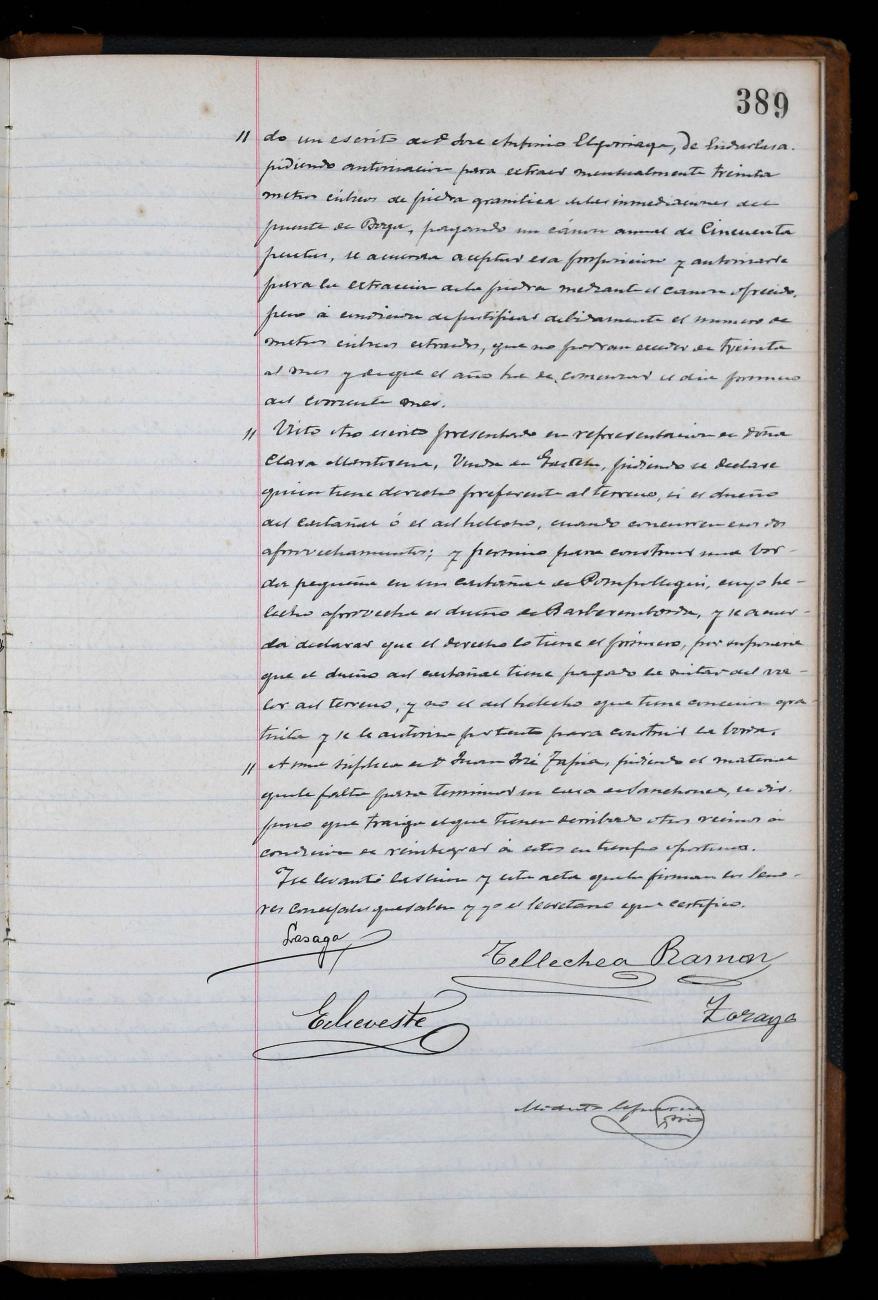 389
" do un escrito de Dn José Antonio Elgorriaga, de Endarlasa.
pidiendo autorización para extraer mensualmente treinta
metros cúbicos de piedra granítica de las inmediaciones del
puente de Boga, pagando un cánon anual de Cincuenta
pesetas, se acuerda aceptar esa proposición y autorizarle
para la extracción de la piedra mediante el cánon ofrecido,
pero á condición de justificar debidamente el número de
metros cúbicos extraidos, que no podrán exceder de treinta
al mes y de que el año ha de comenzar el dia primero
del corriente mes.
" Visto otro escrito presentado en representación de doña
Clara Viuda de pidiendo se declare
quien tiene derecho preferente al terreno, si el dueño
del castañal ó el del helecho, cuando concurren esos dos
aprovechamientos; y permiso para construir una bor-
da pequeña en un castañal de cuyo he-
lecho aprovecha el dueño de y se acuer-
da declarar que el derecho lo tiene el primero, por suponerse
que el dueño del castañal tiene pagado la mitad del va-
lor del terreno, y no el del helecho que tiene concesión gra-
tuita y se le autoriza por tanto para construir la borda.
" A una súplica de Dn Juan José Tapia, pidiendo el material
que le falta para terminar su casa de se dis-
puso que traiga el que tienen derribado otros vecinos á
condición de reintegrar á estos en tiempo oportuno.
Y se levantó la sesión y esta acta que la firman los Seño-
res concejales que saben y yo el Secretario que certifico.
Lasaga
Tellechea Ramon
Echeveste
Zoraya